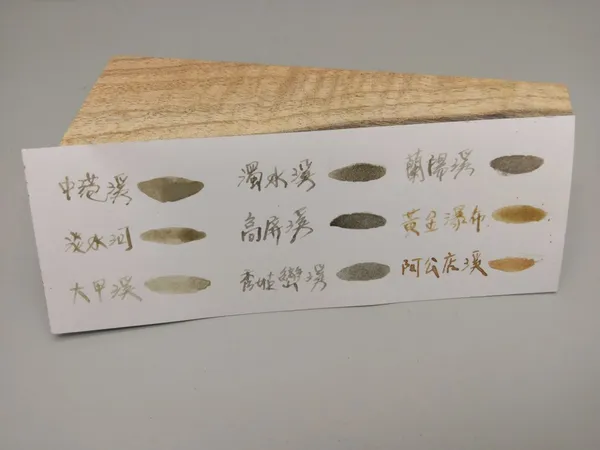 中港溪
淡水河
大甲溪
濁水溪
高屏溪
秀姑巒溪
蘭陽溪
黃金瀑布
阿公店溪